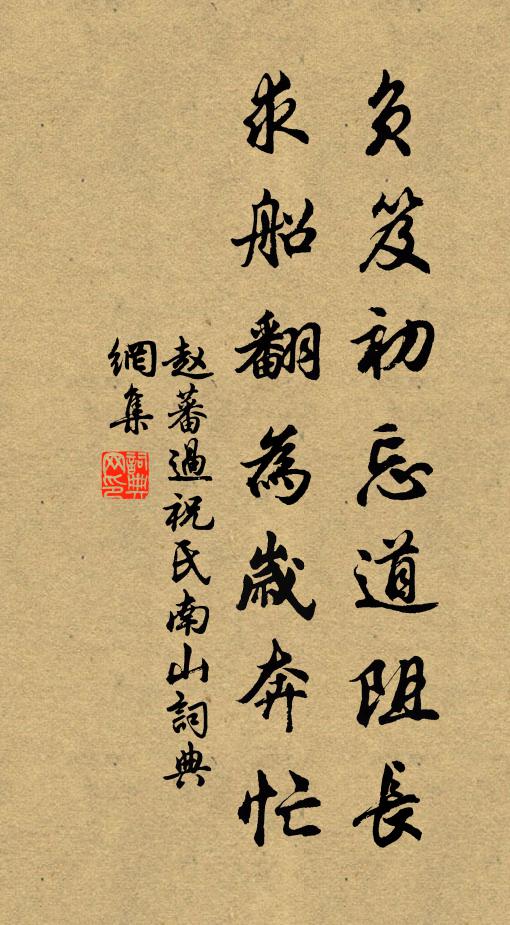 负笈初忘道阻長
求船翻為歲奔忙
赵蕃過祝氏南山詞典
網集
詞典網印